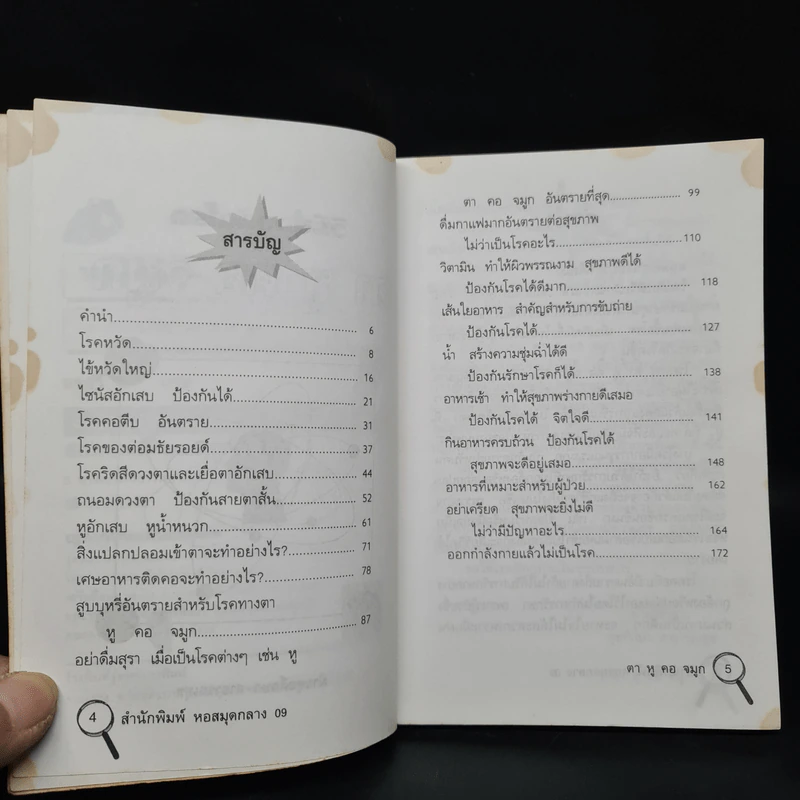 สารบัญ
คำนำ 6
โรคหวัด 8
ไข้หวัดใหญ่ 16
ไซนัสอักเสบ ป้องกันได้ 21
โรคคอตีบ อันตราย 31
โรคของต่อมธัยรอยด์ 37
โรคริดสีดวงตาและเยื่อตาอักเสบ 44
ถนอมดวงตา ป้องกันสายตาสั้น 52
หูอักเสบ หูน้ำหนวก 61
สิ่งแปลกปลอมเข้าตาจะทำอย่างไร? 71
เศษอาหารติดคอจะทำอย่างไร? 78
สูบบุหรี่อันตรายสำหรับโรคทางตา
หู คอ จมูก 87
อย่าดื่มสุรา เมื่อเป็นโรคต่างๆ เช่น หู
4 สำนักพิมพ์ หอสมุดกลาง 09
ตา คอ จมูก อันตรายที่สุด 99
ดื่มกาแฟมากอันตรายต่อสุขภาพ
ไม่ว่าเป็นโรคอะไร 110
วิตามิน ทำให้ผิวพรรณงาม สุขภาพดีได้
ป้องกันโรคได้ดีมาก 118
เส้นใยอาหาร สำคัญสำหรับการขับถ่าย
ป้องกันโรคได้ 127
น้ำ สร้างความชุ่มฉ่ำได้ดี
ป้องกันรักษาโรคก็ได้ 138
อาหารเช้า ทำให้สุขภาพร่างกายดีเสมอ
ป้องกันโรคได้ จิตใจดี 141
กินอาหารครบถ้วน ป้องกันโรคได้
สุขภาพจะดีอยู่เสมอ 148
อาหารที่เหมาะสำหรับผู้ป่วย 162
อย่าเครียด สุขภาพจะยิ่งไม่ดี
ไม่ว่ามีปัญหาอะไร 164
ออกกำลังกายแล้วไม่เป็นโรค 172
ตา หู คอ จมูก 5